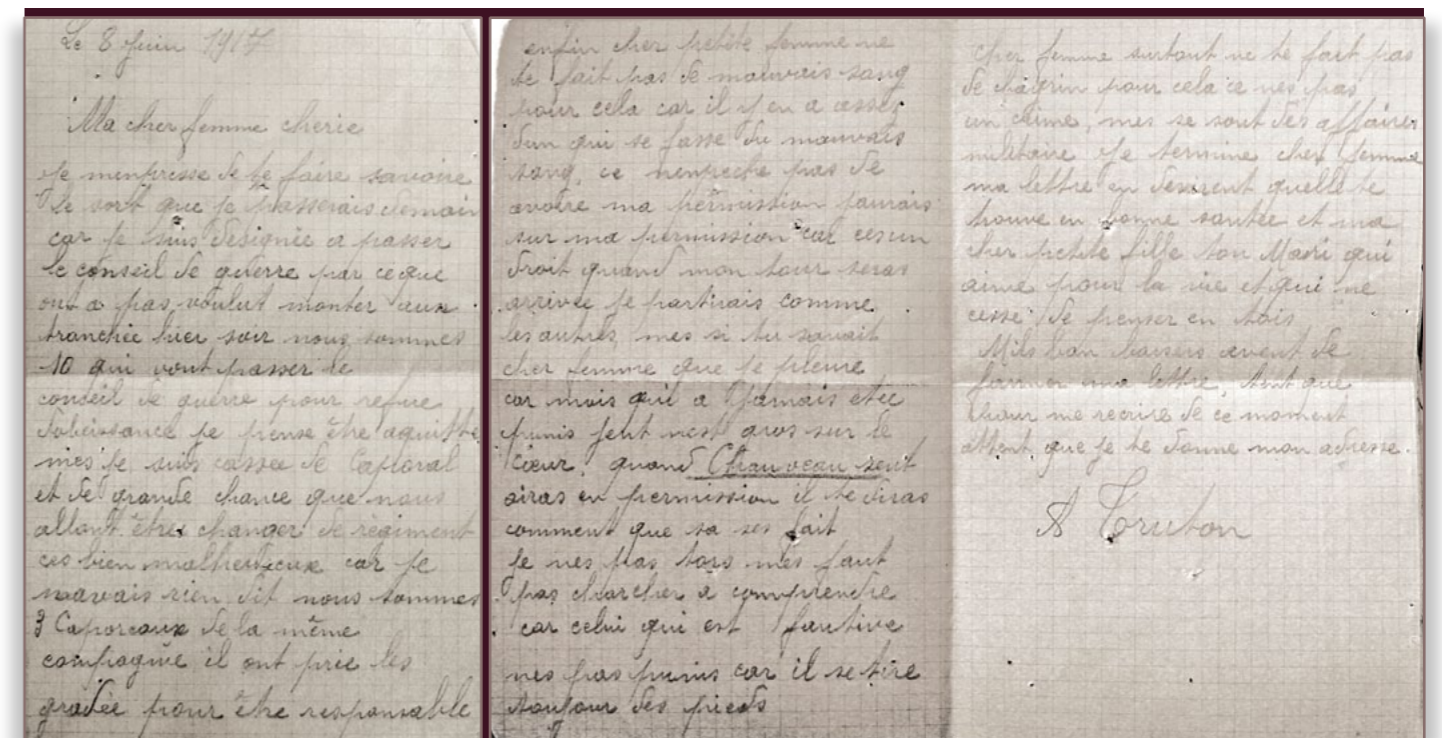 Le 8 Juin 1917
Ma cher femme cherie
Je menpresse de te faire savoire
le sort que je passerais demain
car je suis designée a passer
le conseil de guerre par ceque
ont a pas voulut monter aux
tranchée hier soir nous sommes
10 qui vont passer le
conseil de guerre pour refue
dobeissance je pense être aquitté
mes je suis cassée de Caporal
et de grande chance que nous
allont être changer de regiment
ces bien malheureux car je
navais rien dit nous sommes
3 Caporeaux de la même
compagnie il ont prie les
gradée pour être responsable
enfin cher petite femme ne
te fait pas de mauvais sang
pour cela car il y en a assez
dun qui se fasse du mauvais
sang, ce nenpeche pas de
avoire ma permission jaurais
sur ma permission car cesun
droit quand mon tour seras
arrivée je partirais comme
les autres, mes si tu savait
cher femme que je pleure
car mois qui a jamais etee
punis jent nest gros sur le
cœur, quand Chauveau sent
airas en permission il te diras
comment que sa ses fait
je nes pas tors mes faut
pas chercher a comprendre
car celui qui est fautive
nes pas punis car il se tire
toujour des pieds
cher femme surtout ne te fait pas
de chagrin pour cela ce nes pas
un crime, mes se sont des affaires
militaire Je termine cher femme
ma lettre en desirent quelle te
trouve en bonne santée et ma
cher petite fille ton Mari qui
aime pour la vie et qui ne
cesse de penser en tois
Mils bon baisers avent de
fermer ma lettre, tent que
pour me recrire de ce moment
attent que je te donne mon adresse.
A Truton